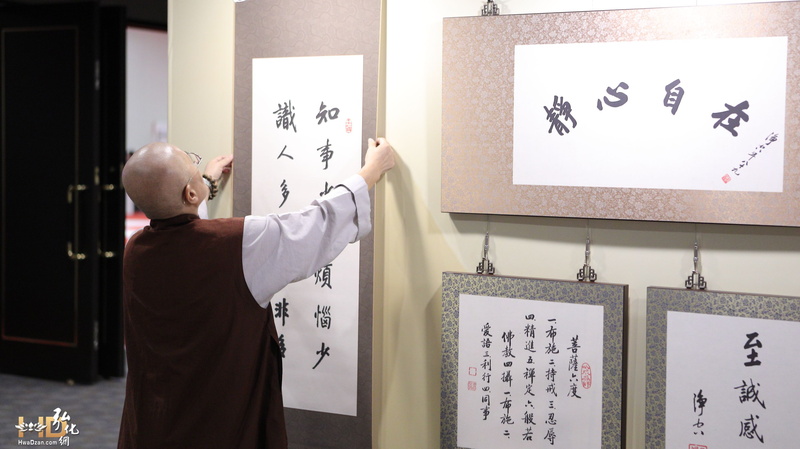 知事少
煩惱少
識人多
非多
靜心自在
菩薩六度
一布施二持戒三忍辱
四精進五禪定六般若
佛教四攝一布施二
愛語三利行四同事
至誠感
淨空
HD
弘化網
HwaDzan.com